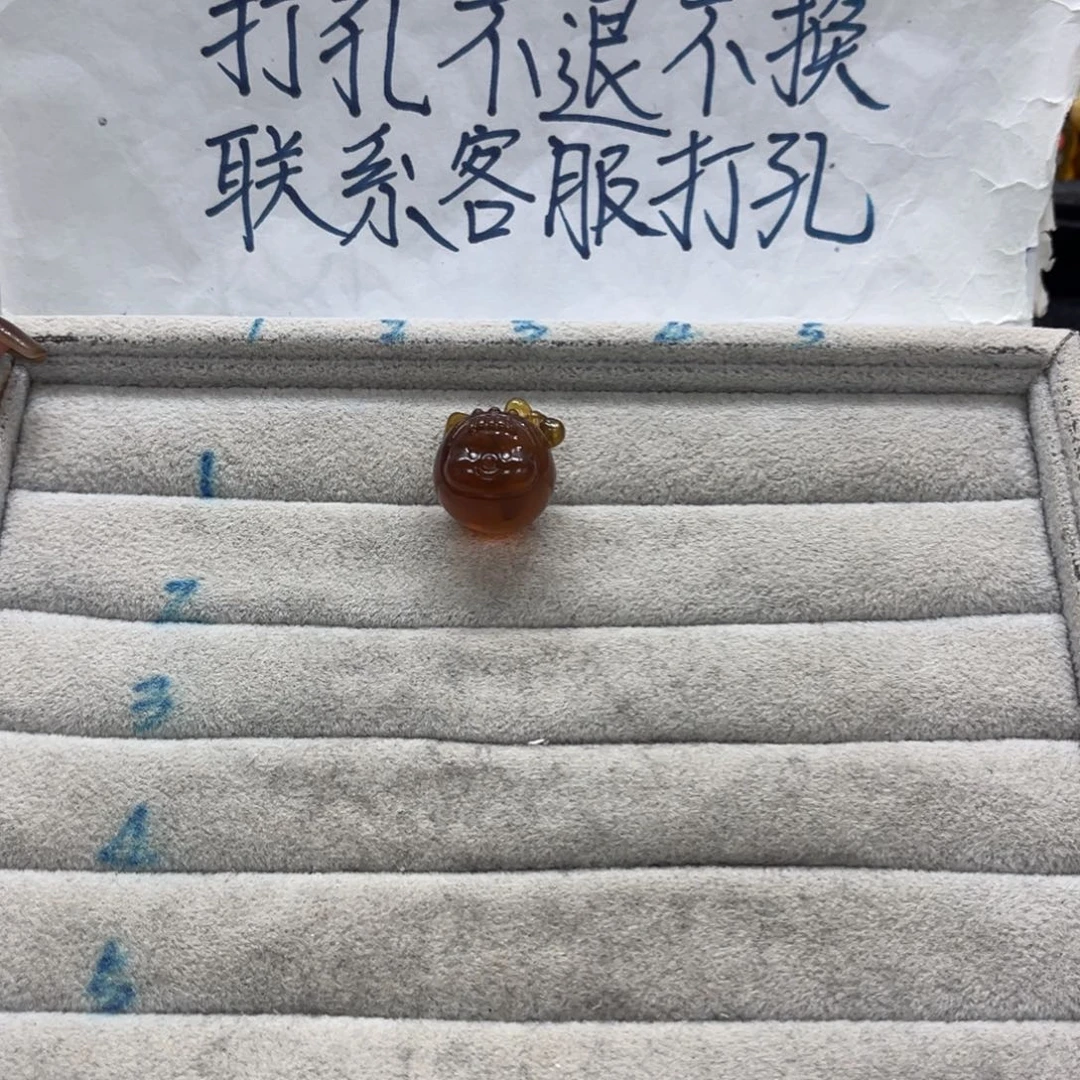 打孔不退不换
联系客服打孔
1 2 3 4 5
1
2
3
4
5